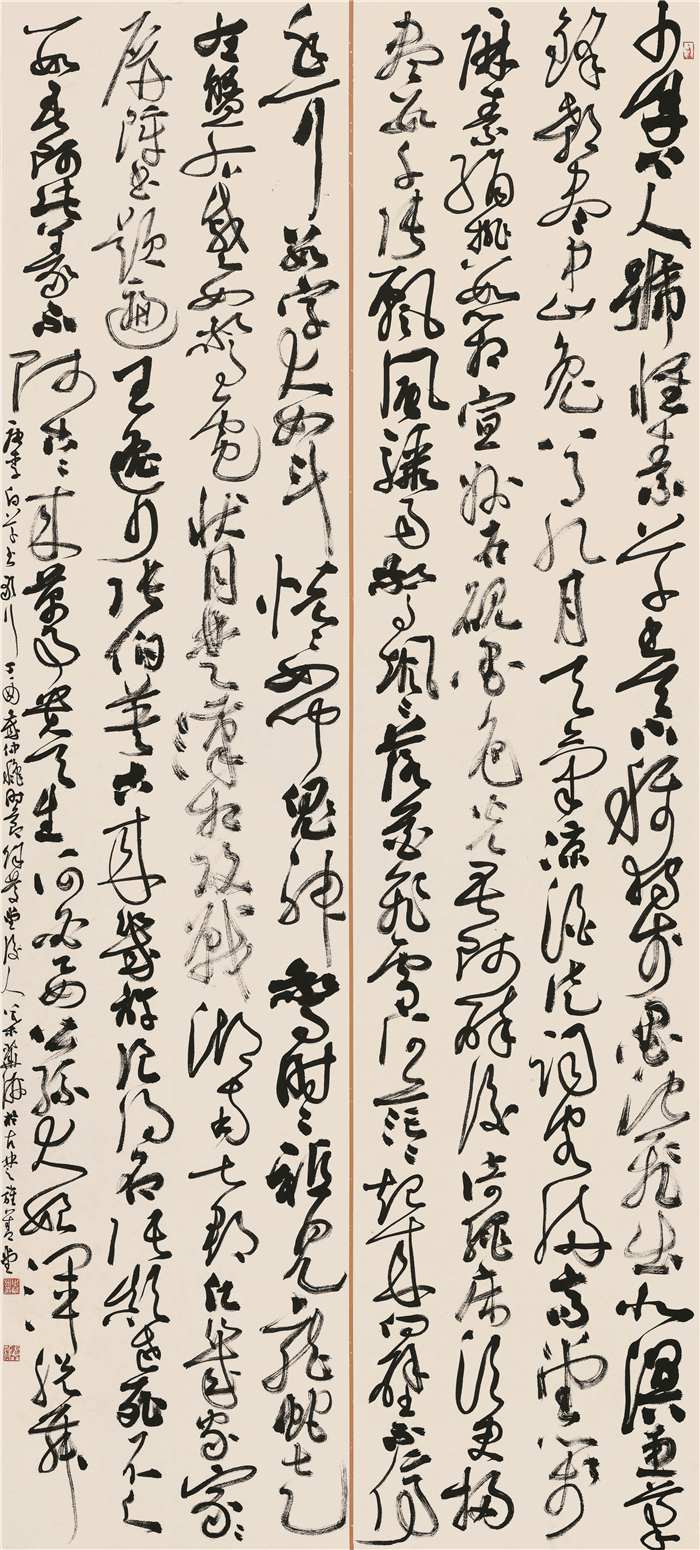 少年上人號懷素草書天下稱獨步墨池飛出北溟魚筆
鋒殺盡中山兔八月九月天氣涼酒徒詞客滿高堂箋
麻素絹排數箱宣州石硯墨色光吾師醉後倚繩床須臾掃
盡數千張飄風驟雨驚颯颯落花飛雪何茫茫起來向壁不停
手一行數字大如斗恍恍如聞鬼神驚時時祇見龍蛇走
左盤右蹙如驚電狀同楚漢相攻戰湖南七郡凡幾家家家
屏障書題遍王逸少張伯英古來幾許浪得名張顛老死不足
數吾師此義不師古古來萬事貴天生何必要公孫大娘渾脫舞
唐李白草書歌行丁酉 時節 堂後人 於古楚 堂